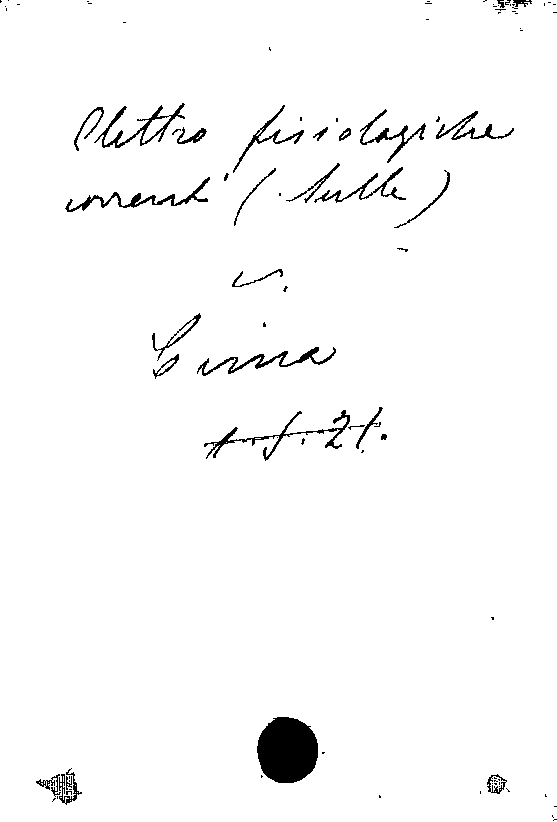 Elettro fisiologiche
correnti (Sulle)
v.
Cima
1.f.21.